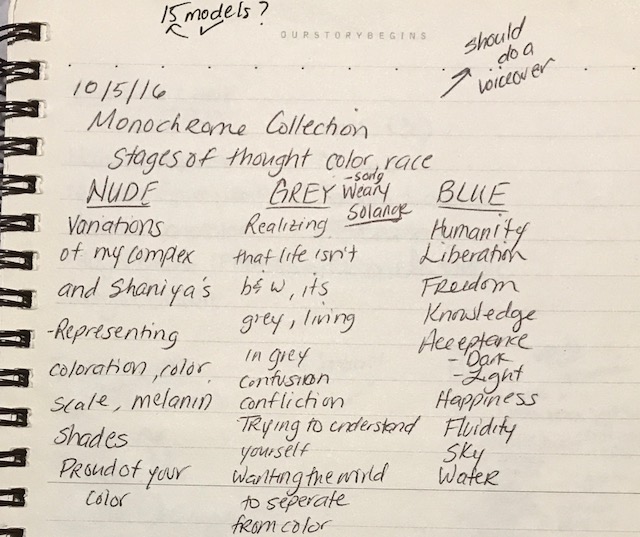 15 models?
OURSTORYBEGINS
should
do a
voiceover
10/5/16
Monochrome Collection
Stages of thought color, race
NUDE
Variations
of my complex
and Shaniya's
-Representing
coloration, color
scale, melanin
shades
Proud of your
color
GREY
-song
Weary
Solange
Realizing
that life isn't
b&w, its
grey, living
in grey
confusion
confliction
Trying to understand
yourself
Wanting the world
to seperate
from color
BLUE
Humanity
Liberation
Freedom
Knowledge
Acceptance
-Dark
-Light
Happiness
Fluidity
Sky
Water